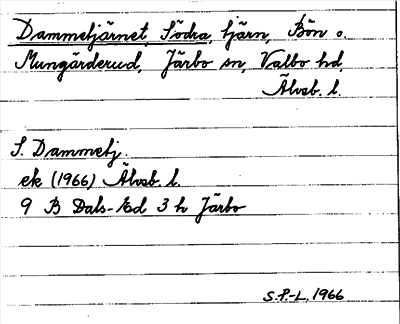 Dammetjärnet, Södra, tjärn, Bön o.
Mungärderud, Järbo sn, Valbo hd,
Älvsb. l.
S. Dammetj.
ek (1966) Älvsb. l.
9 B Dals-Ed 3 h Järbo
S.P.-L. 1966